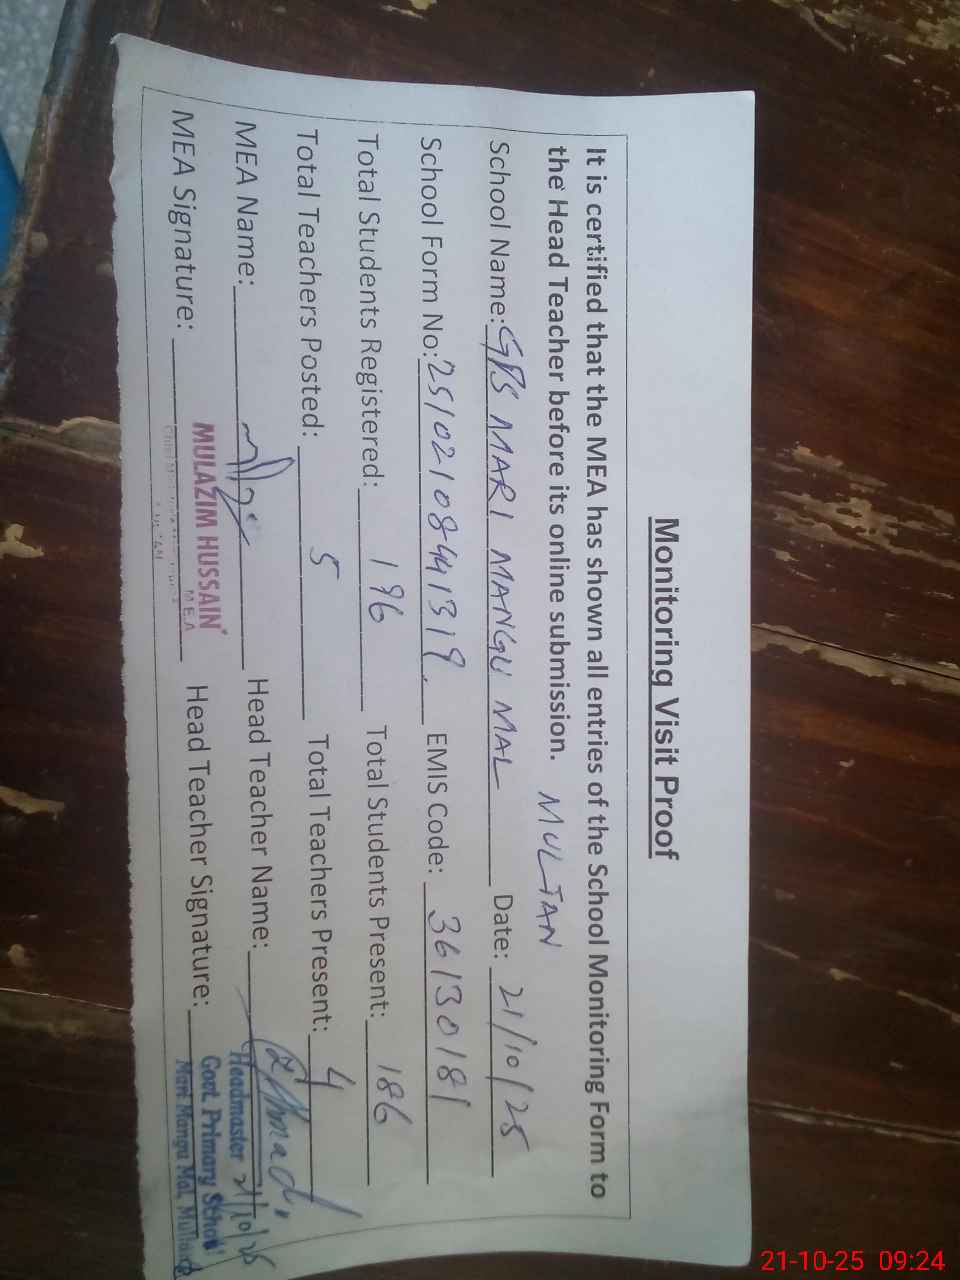 Monitoring Visit Proof
It is certified that the MEA has shown all entries of the School Monitoring Form to
the Head Teacher before its online submission. MULTAN
School Name: GPS MARI MANGU MAL Date: 21/10/25
School Form No: 25102108441319 EMIS Code: 36130181
Total Students Registered: 196 Total Students Present: 186
Total Teachers Posted: 5 Total Teachers Present: 4
MEA Name: Head Teacher Name:
MEA Signature: MULAZIM HUSSAIN Head Teacher Signature:
M.E.A
Headmaster 21/10/25
Govt. Primary School
Mari Mangu Mal, Multan
21-10-25 09:24